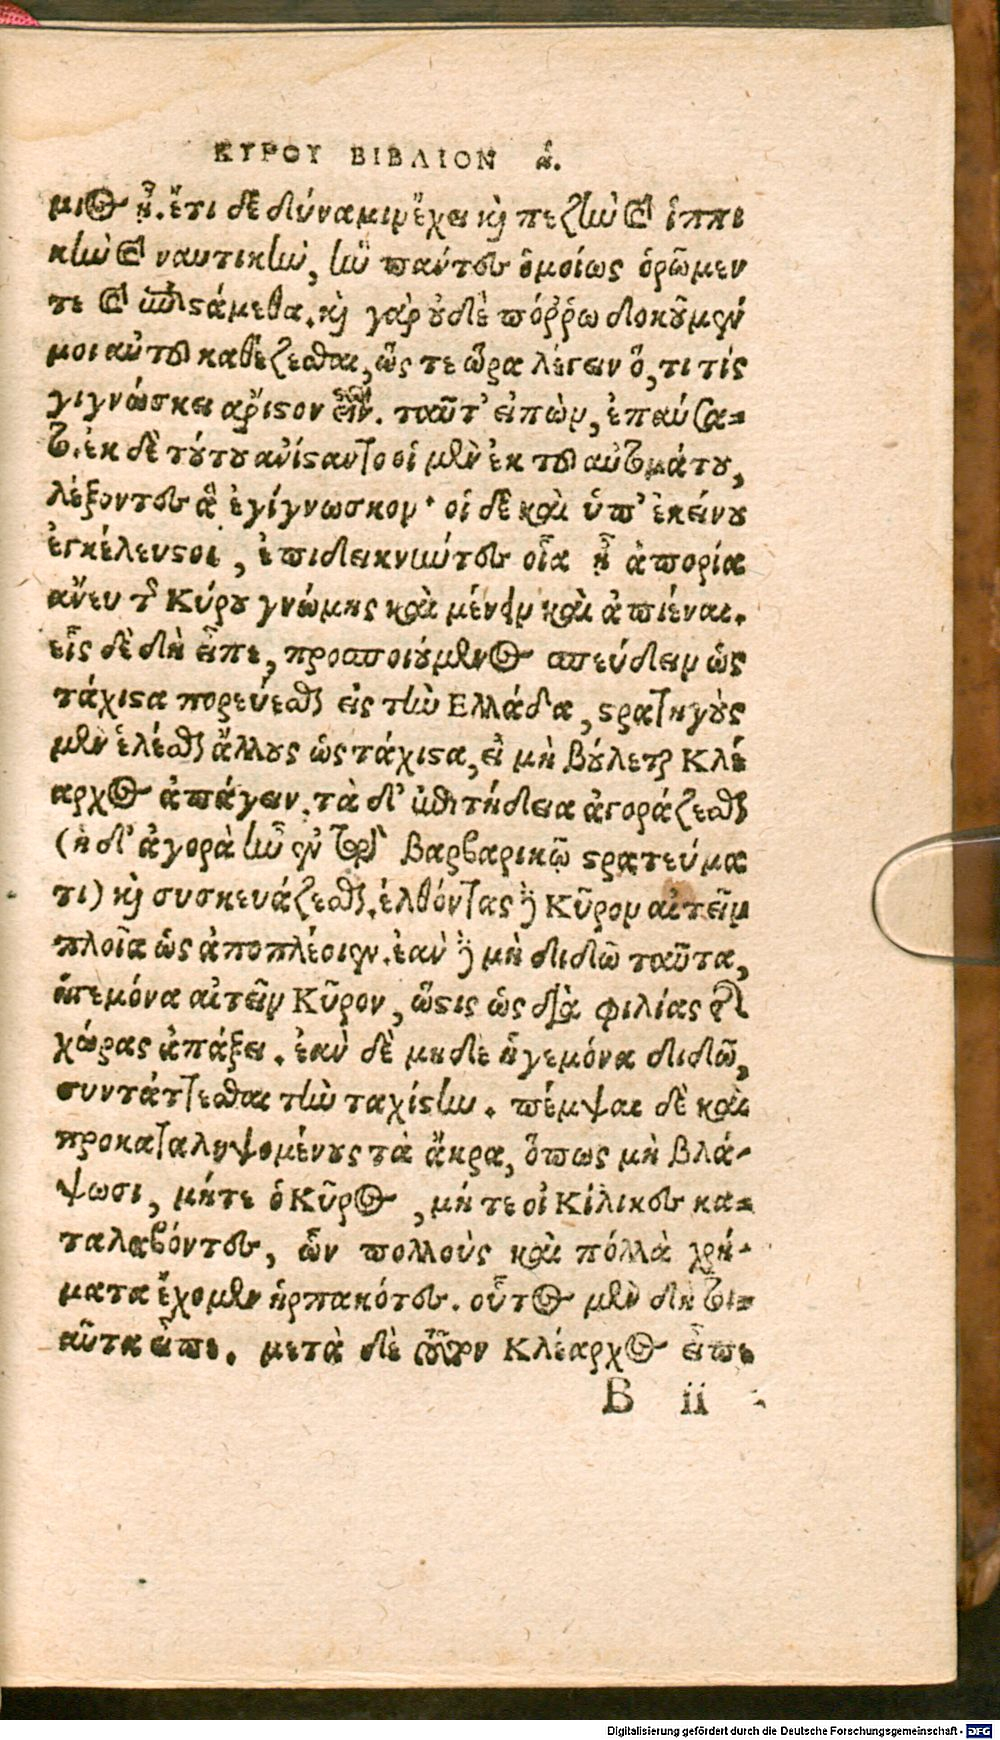 ΚΥΡΟΥ ΒΙΒΛΙΟΝ ά.
μιος ᾖ. ἔτι δὲ δύναμιν ἔχει καὶ πεζὴν καὶ ἱππι
κὴν καὶ ναυτικὴν, ἣν πάντες ὁμοίως ὁρῶμέν
τε καὶ ἐπιστάμεθα. καὶ γὰρ οὐδὲ πόῤῥω δοκοῦμέν
μοι αὐτοῦ καθέζεσθαι, ὥς τε ὥρα λέγειν ὅ, τι τίς
γιγνώσκει ἄριστον εἶναι. ταῦτ' εἰπὼν, ἐπαύσα-
το. ἐκ δὲ τούτου ἀνίσταντο οἱ μὲν ἐκ τοῦ αὐτομάτου,
λέξοντες ἃ ἐγίγνωσκον· οἱ δὲ καὶ ὑπ' ἐκείνου
ἐγκέλευστοι, ἐπιδεικνύντες οἵα ᾖ ἀπορία
ἄνευ τῆς Κύρου γνώμης καὶ μένειν καὶ ἀπιέναι.
εἷς δὲ δὴ εἶπε, προσποιούμενος σπεύδειν ὡς
τάχιστα πορεύεσθαι εἰς τὴν Ελλάδα, στρατηγοὺς
μὲν ἑλέσθαι ἄλλους ὡς τάχιστα, εἰ μὴ βούλεται Κλέ
αρχος ἀπάγειν. τὰ δ' ἐπιτήδεια ἀγοράζεσθαι
(ἡ δ' ἀγορὰ ἦν ἐν τῷ βαρβαρικῷ στρατεύμα
τι) καὶ συσκευάζεσθαι. ἐλθόντας δὲ Κῦρον αἰτεῖν
πλοῖα ὡς ἀποπλέοιεν. ἐὰν δὲ μὴ διδῶ ταῦτα,
ἡγεμόνα αἰτεῖν Κῦρον, ὥστις ὡς διὰ φιλίας τῆς
χώρας ἀπάξει. ἐὰν δὲ μηδὲ ἡγεμόνα διδῶ,
συντάττεσθαι τὴν ταχίστην. πέμψαι δὲ καὶ
προκαταληψομένους τὰ ἄκρα, ὅπως μὴ βλά-
ψωσι, μήτε ὁ Κῦρος, μή τε οἱ Κίλικες κα-
ταλαβόντες, ὧν πολλοὺς καὶ πόλλὰ χρή-
ματα ἔχομεν ἡρπακότες. οὗτος μὲν δὴ τοι-
αῦτα εἶπε. μετὰ δὲ τοῦτον Κλέαρχος εἶπε
B ii
Digitalisierung gefördert durch die Deutsche Forschungsgemeinschaft - DFG